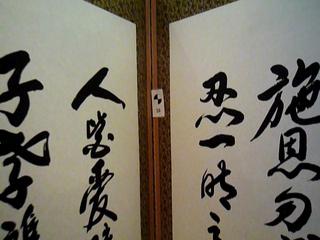 施恩勿
忍一時之
人皆愛
子孝雖